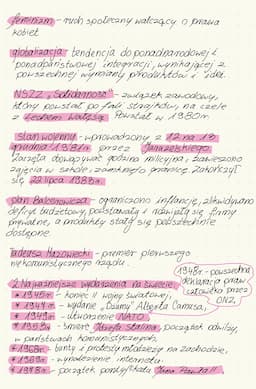 feminizm - ruch społeczny walczący o prawa
kobiet
globalizacja - tendencja do ponadnarodowej i
ponadpaństwowej integracji, wynikającej z
powszechnej wymiany produktów i idei.
NSZZ „Solidarność" - związek zawodowy,
który powstał po fali strajków, na czele
z Lechem Wałęsą. Powstał w 1980r.
stan wojenny - wprowadzony z 12 na 13
grudnia 1981r. przez Jaruzelskiego.
Zaczęła obowiązywać godzina milicyjna, zawieszono
zajęcia w szkole, zamknięto granice. Zakończył
się 22 lipca 1983r.
plan Balcerowicza - ograniczono inflację, zlikwidowano
deficyt budżetowy, powstawały i rozwijały się firmy
prywatne, a produkty stały się powszechnie
dostępne
Tadeusz Mazowiecki - premier pierwszego
niekomunistycznego rządu.
2. Najważniejsze wydarzenia na świecie
* 1945r. - koniec II wojny światowej,
* 1947r. - wydanie „Dżumy" Alberta Camusa,
* 1949r. - utworzenie NATO
* 1953r. - śmierć Józefa Stalina, początek odwilży
w państwach komunistycznych,
* 1968r. - bunty i protesty młodzieży na zachodzie,
* 1969r. - wynalezienie internetu
* 1978r. - początek pontyfikatu Jana Pawła II
1948r. - powszechna
deklaracja praw
człowieka przez
ONZ,